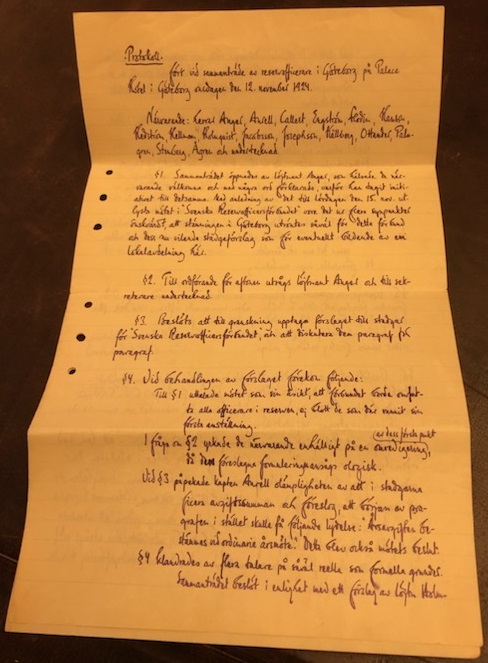 Protokoll
fört vid sammanträde av reservofficerare i Göteborg på Palace
Hotel i Göteborg onsdagen den 12. november 1924.
Närvarande: herrar Anger, Axell, Callert, Engström, Hansson,
Hellman, Holmquist, Jacobsson, Josephson, Ottander, Palm-
gren, Stenberg, Ågren och undertecknad.
§1. Sammanträdet öppnades av löjtnant Anger, som hälsade de när-
varande välkomna och med några ord förklarade, varför han tagit initi-
ativet till detsamma. Med anledning av det till lördagen den 15. nov. ut-
lysta mötet i "Svenska Reservofficersförbundet" vore det ur flera synpunkter
önskvärt, att stämningen i Göteborg utröntes såväl för detta förbund
och dess nu vilande stadgeförslag som för eventuellt bildande av en
lokalavdelning här.
§2. Till ordförande för aftonen utsågs löjtnant Anger och till sek-
reterare undertecknad.
§3. Beslöts att till granskning upptaga förslaget till stadgar
för "Svenska Reservofficersförbundet", att diskutera dem paragraf för
paragraf.
§4. Vid behandlingen av förslaget förekom följande:
Till §1 uttalade mötet som sin åsikt, att förbundet borde omfat-
ta alla officerare i reserven, ej blott de som där vunnit sin
första anställning.
I fråga om §2 yrkade de närvarande enhälligt på en omredigering,
(av dess första punkt)
då den föreslagna formuleringen ansågs ologisk.
Vid §3 påpekade kapten Axell olämpligheten av att i stadgarna
fixera avgiftssumman och föreslog, att början av para-
grafen i stället skulle få följande lydelse: "Årsavgiften be-
stämmes vid ordinarie årsmöte". Detta blev också mötets beslut.
§4 klandrades av flera talare på såväl reella som formella grunder.
Sammanträdet beslöt i enlighet med ett förslag av löjtn. Holm-